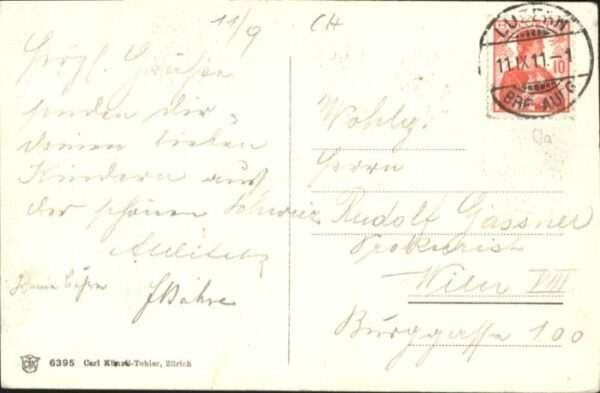 11/9 CH
Herzl. Grüße
senden dir,
deinen lieben
Kindern aus
der schönen Schweiz
LUZERN
11.IX.11.-1
BRF. AUFG.
10
Wohlg.
Herrn
Rudolf Gassner
Prokurist
Wien VIII
Burggasse 100
6395 Carl Künzli-Tobler, Zürich